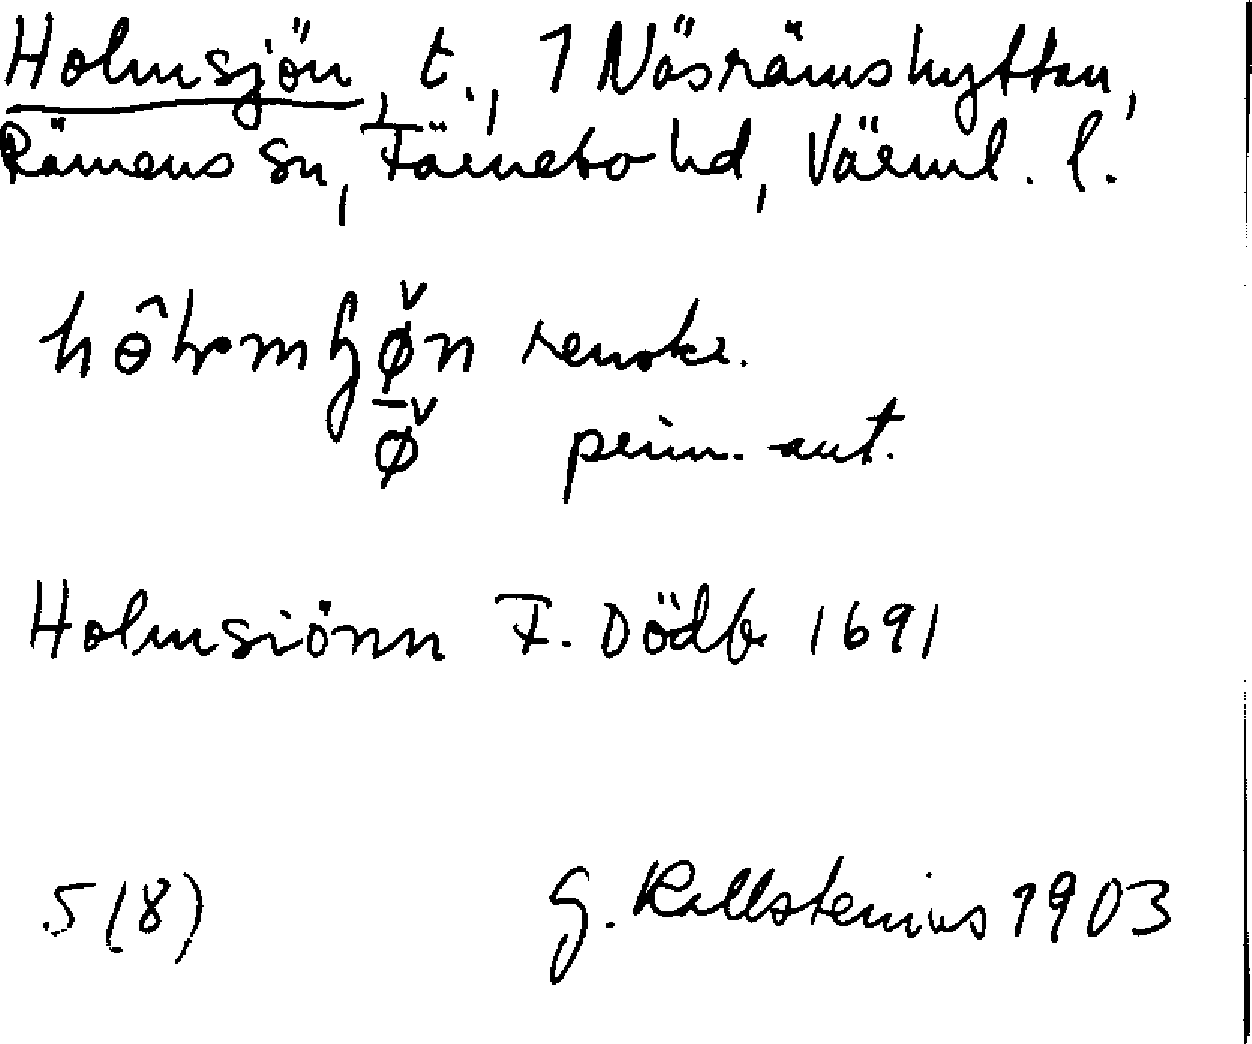 Holmsjön, t., 1 Näsrämshyttan,
Rämens sn, Färnebo hd, Värml. l.
renskr.
prim. ant.
Holmsiönn F. Dödb 1691
5 (8) G. Kallstenius 1903